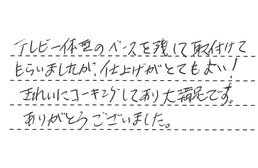 テレビ一体型のベースを残して取付けて
もらいましたが、仕上げがとてもよい!
きれいにコーキングしてあり大満足です。
ありがとうございました。